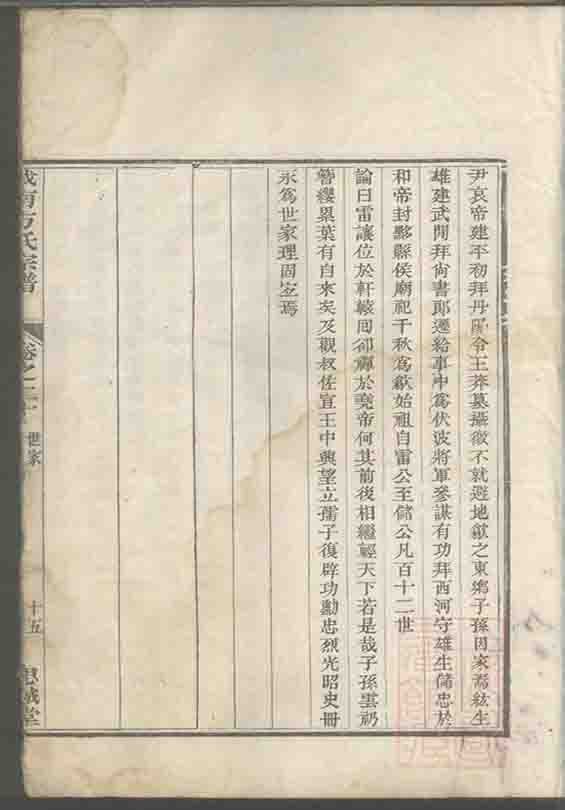 尹哀帝建平初拜丹陽令王莽墓攝徵不就避地歙之東鄉子孫因家焉紘生
雄建武閒拜尙書郞遷給事中爲伏波將軍參謀有功拜西河守雄生儲忠於
和帝封黟縣侯廟祀千秋爲歙始祖自雷公至儲公凡百十二世
論曰雷讓位於軒轅回卻禪於堯帝何其前後相繼輕天下若是哉子孫雲礽
簪纓累葉有自來矣及觀叔佐宣王中興望立孺子復辟功勳忠烈光昭史冊
永爲世家理固宜焉
南方氏宗譜
卷之二十
世家
十五
思誠堂